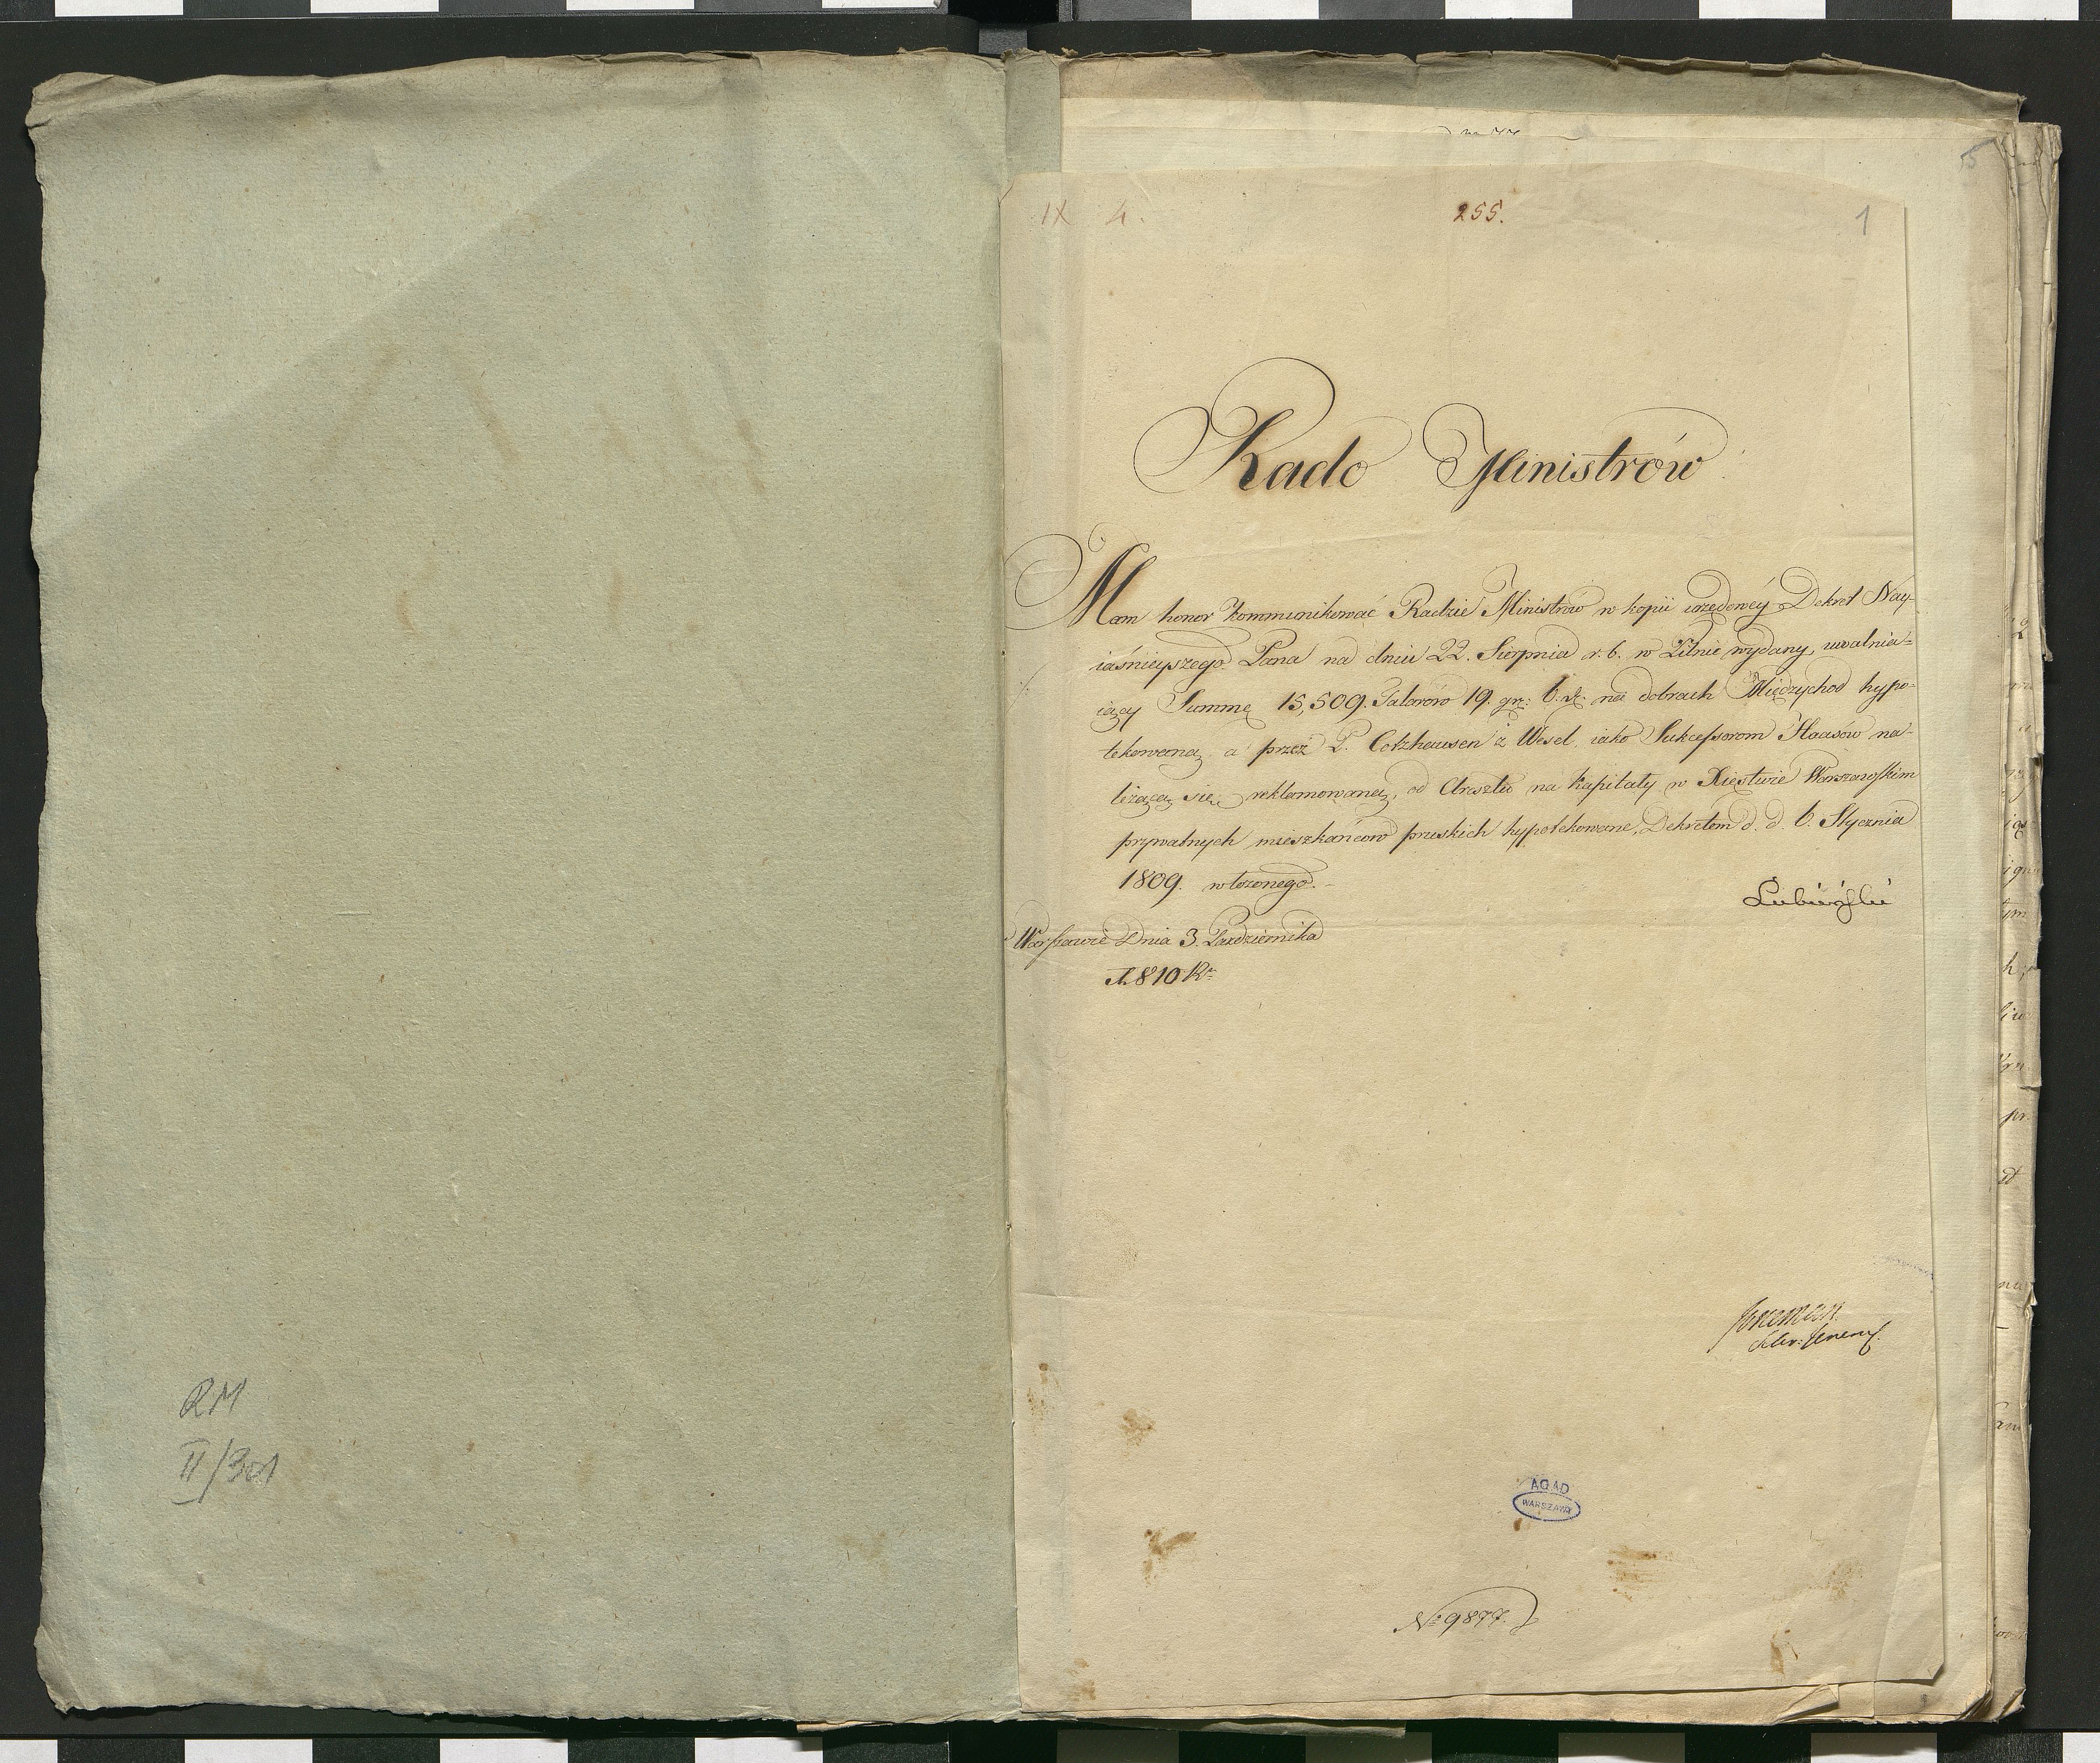 RM
II/301
5
IX 4.
255.
1
Rado Ministrów
Mam honor kommunikować Radzie Ministrów w kopii urzędowéy Dekret Nay-
iaśnieyszego Pana na dniu 22. Sierpnia r. b. w Pilnic wydany, uwalnia-
iący Summę 15,509. Talarów 19. gr: 6. d: na dobrach Międzychod hypo-
tekowaną a przez P. Cotzhausen z Wesel iako Sukcessorom Haasów na-
leżącą się reklamowaną, od Aresztu na kapitały w Xięstwie Warszawskim
prywatnych mieszkańców pruskich hypotekowane, Dekretem d. d. 6. Stycznia
1809. włożonego.
Lubieński
w Warszawie Dnia 3. Października
1810 Rk:
AGAD
WARSZAWA
No: 9877.